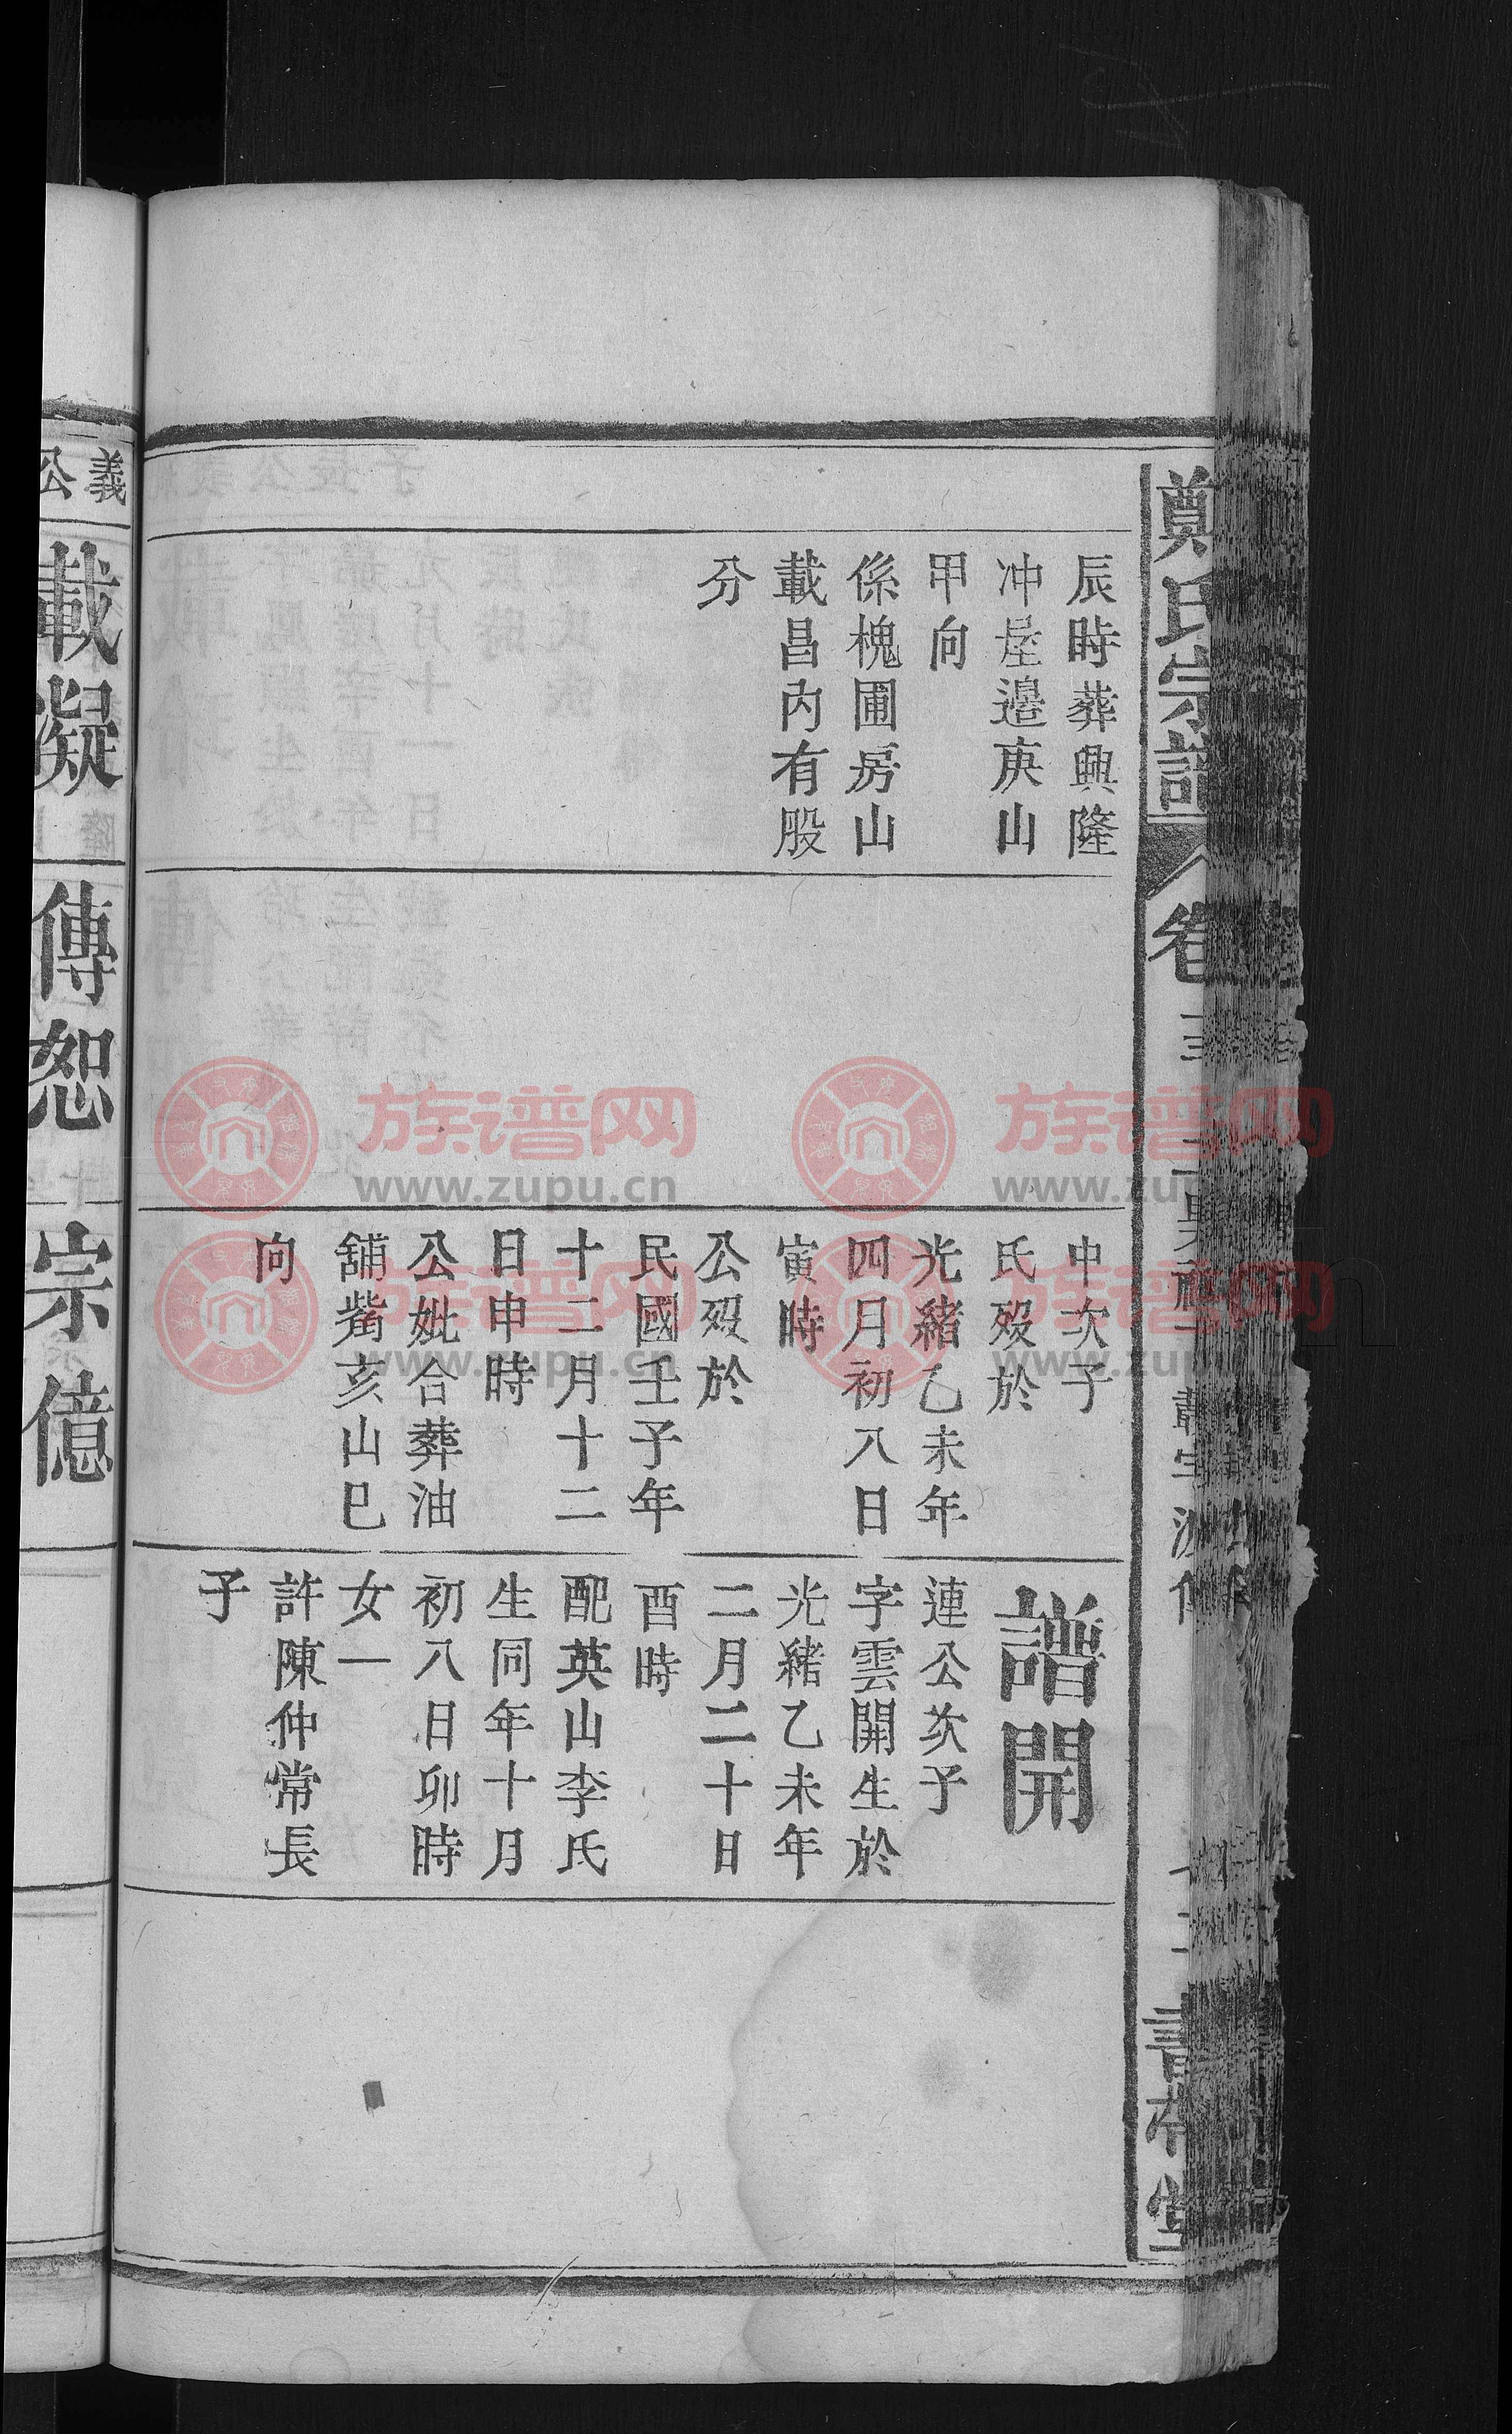 鄭氏宗譜
卷三
辰時葬興隆
冲屋邊庚山
甲向
係槐圃房山
載昌內有股
分
中次子
氏歿於
光緒乙未年
四月初八日
寅時
公歿於
民國壬子年
十二月十二
日申時
公妣合葬油
舖嘴亥山巳
向
譜開
連公次子
字雲開生於
光緒乙未年
二月二十日
酉時
配英山李氏
生同年十月
初八日卯時
女一
許陳仲常長
子
義
公
載凝
傳恕
宗億
族谱网
www.zupu.cn
族谱网
www.zupu.cn
族谱网
www.zupu.cn
族谱网
www.zupu.cn